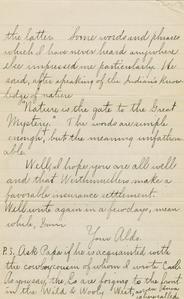 the latter. Some words and phrases
which I have never heard anywhere
else impressed me particularly. He
said, after speaking of the Indian's know-
ledge of nature
"Nature is the gate to the Great
Mystery." The words are simple
enough, but the meaning unfathom-
able!
Well, I hope you are all well
and that Weithmuellers make a
favorable insurance settlement.
Will write again in a few days, mean
while,
Your Aldo.
P.S. Ask Papa if he is acquainted with
the cowboy cousin of whom I wrote
say, the are forging to the front
in the Wild & Wooly West,